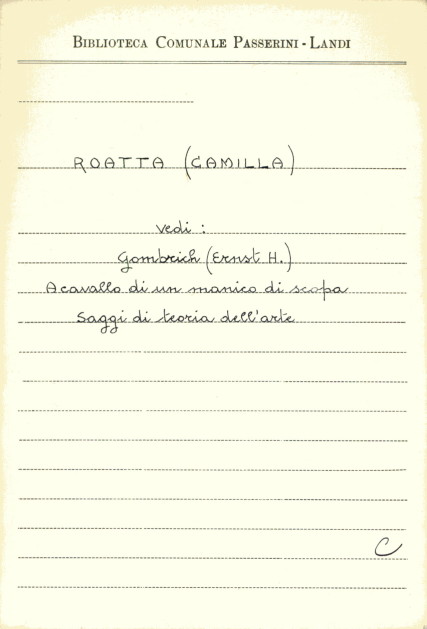 BIBLIOTECA COMUNALE PASSERINI - LANDI
ROATTA (CAMILLA)
vedi :
Gombrich (Ernst H.)
A cavallo di un manico di scopa
Saggi di teoria dell'arte
C